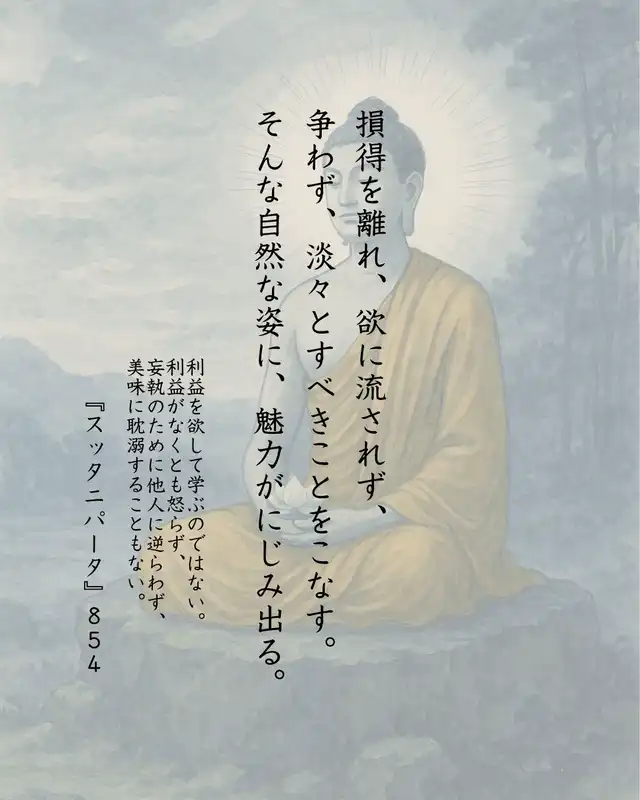 損得を離れ、欲に流されず、
争わず、淡々とすべきことをこなす。
そんな自然な姿に、魅力がにじみ出る。
利益を欲して学ぶのではない。
利益がなくとも怒らず、
妄執のために他人に逆らわず、
美味に耽溺することもない。
『スッタニパータ』854